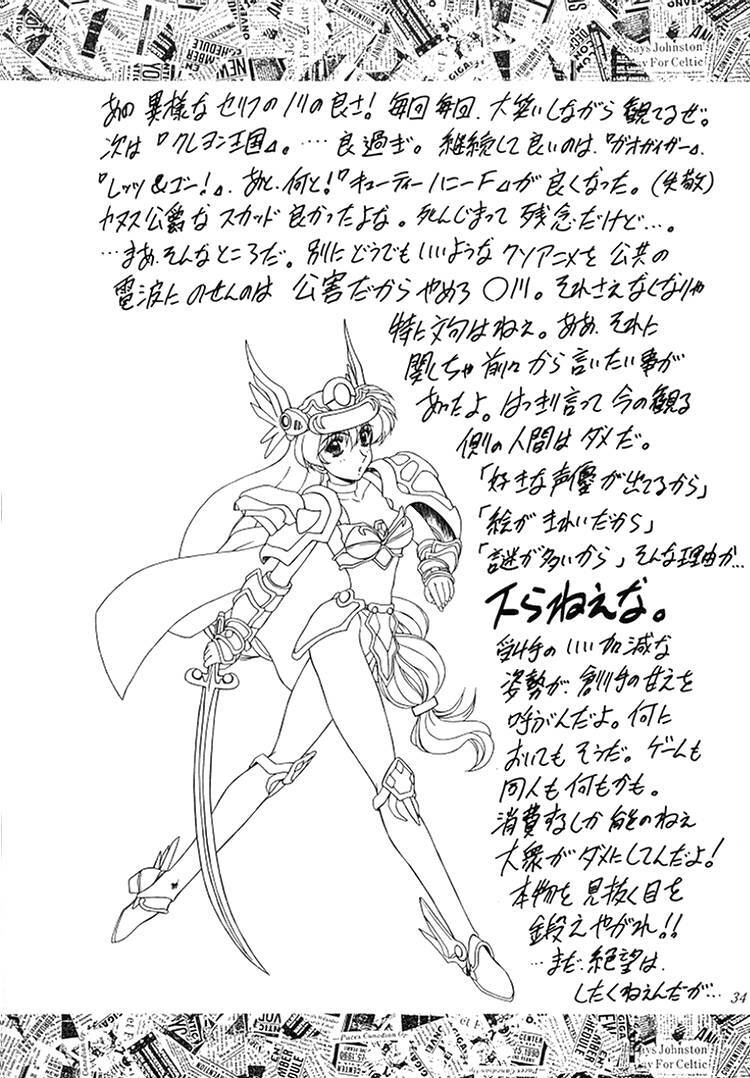 あの 異様な セリフの ノリの 良さ! 毎回 毎回、大笑いしながら 観てるぜ。
次は『クレヨン王国』。…良過ぎ。継続して 良いのは、『ガオガイガー』、
『レッツ&ゴー!』、あと、何と!『キューティーハニーF』が 良くなった。(失敬)
公爵な スカッド 良かったよな。死んじまって 残念だけど…。
…まあ、そんなところだ。別に どうでも いいような クソアニメを 公共の
電波に のせんのは 公害だから やめろ ○川。それさえ なくなりゃ
特に文句はねぇ。ああ、それに
関しちゃ 前々から 言いたい事が
あったよ。はっきり言って 今の観る
側の人間は ダメだ。
「好きな声優が出てるから」
「絵が きれいだから」
「謎が多いから」そんな理由か…
下らねえな。
受け手の いい加減な
姿勢が、創り手の甘えを
呼がんだよ。何に
おいても そうだ。ゲームも
同人も 何もかも。
消費するしか 能のねぇ
大衆がダメにしてんだよ!
本物を 見抜く目を
鍛えやがれ!!
…まだ、絶望は
したくねえんだが…
34
Says Johnston
Day For Celtic
Says Johnston
Day For Celtic